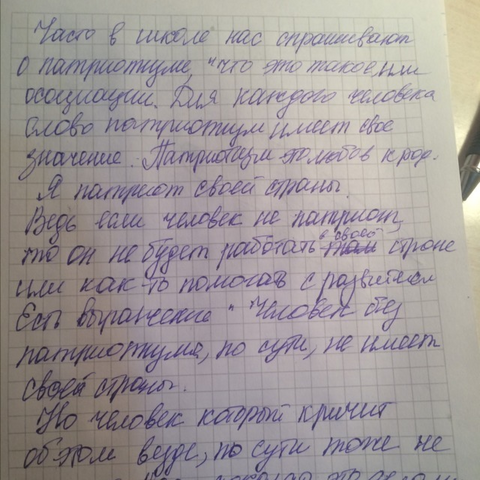 Часто в школе нас спрашивают
о патриотизме, "что это такое или
осоциации. Для каждого человека
слово патриотизм имеет свое
значение. Патриотизм это любовь к род.
Я патриот своей страны.
Ведь если человек не патриот,
то он не будет работать в своей стране
или как-то помогать с развитием
Есть выражение "Человек без
патриотизма, по сути, не имеет
своей страны.
Но человек который кричит
об этом везде, по сути тоже не